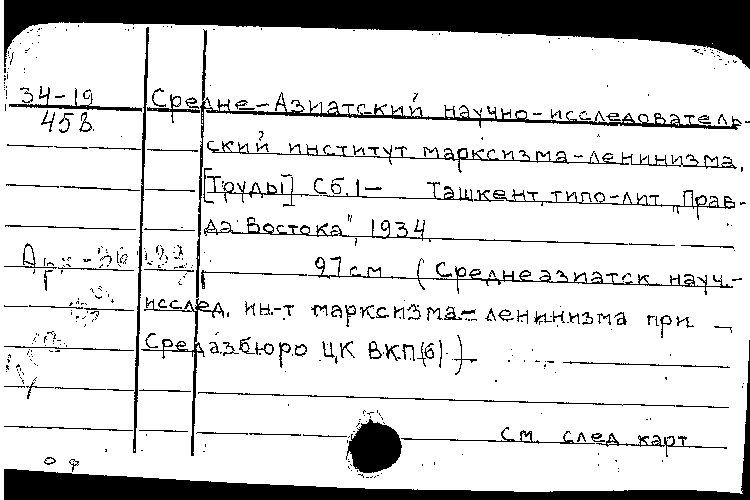 34-19 Средне-Азиатский научно-исследователь-
45в
ский институт марксизма-ленинизма.
[Труды] Сб. 1— Ташкент, типо-лит. „Прав-
да Востока", 1934.
27 см. (Среднеазиатск. науч.-
исслед. ин-т марксизма-ленинизма при
Средазбюро ЦК ВКП(б)).
см. след. карт